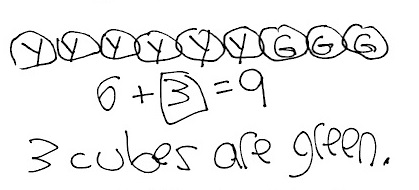 Y Y Y Y Y Y G G G
6 + 3 = 9
3 cubes are green.